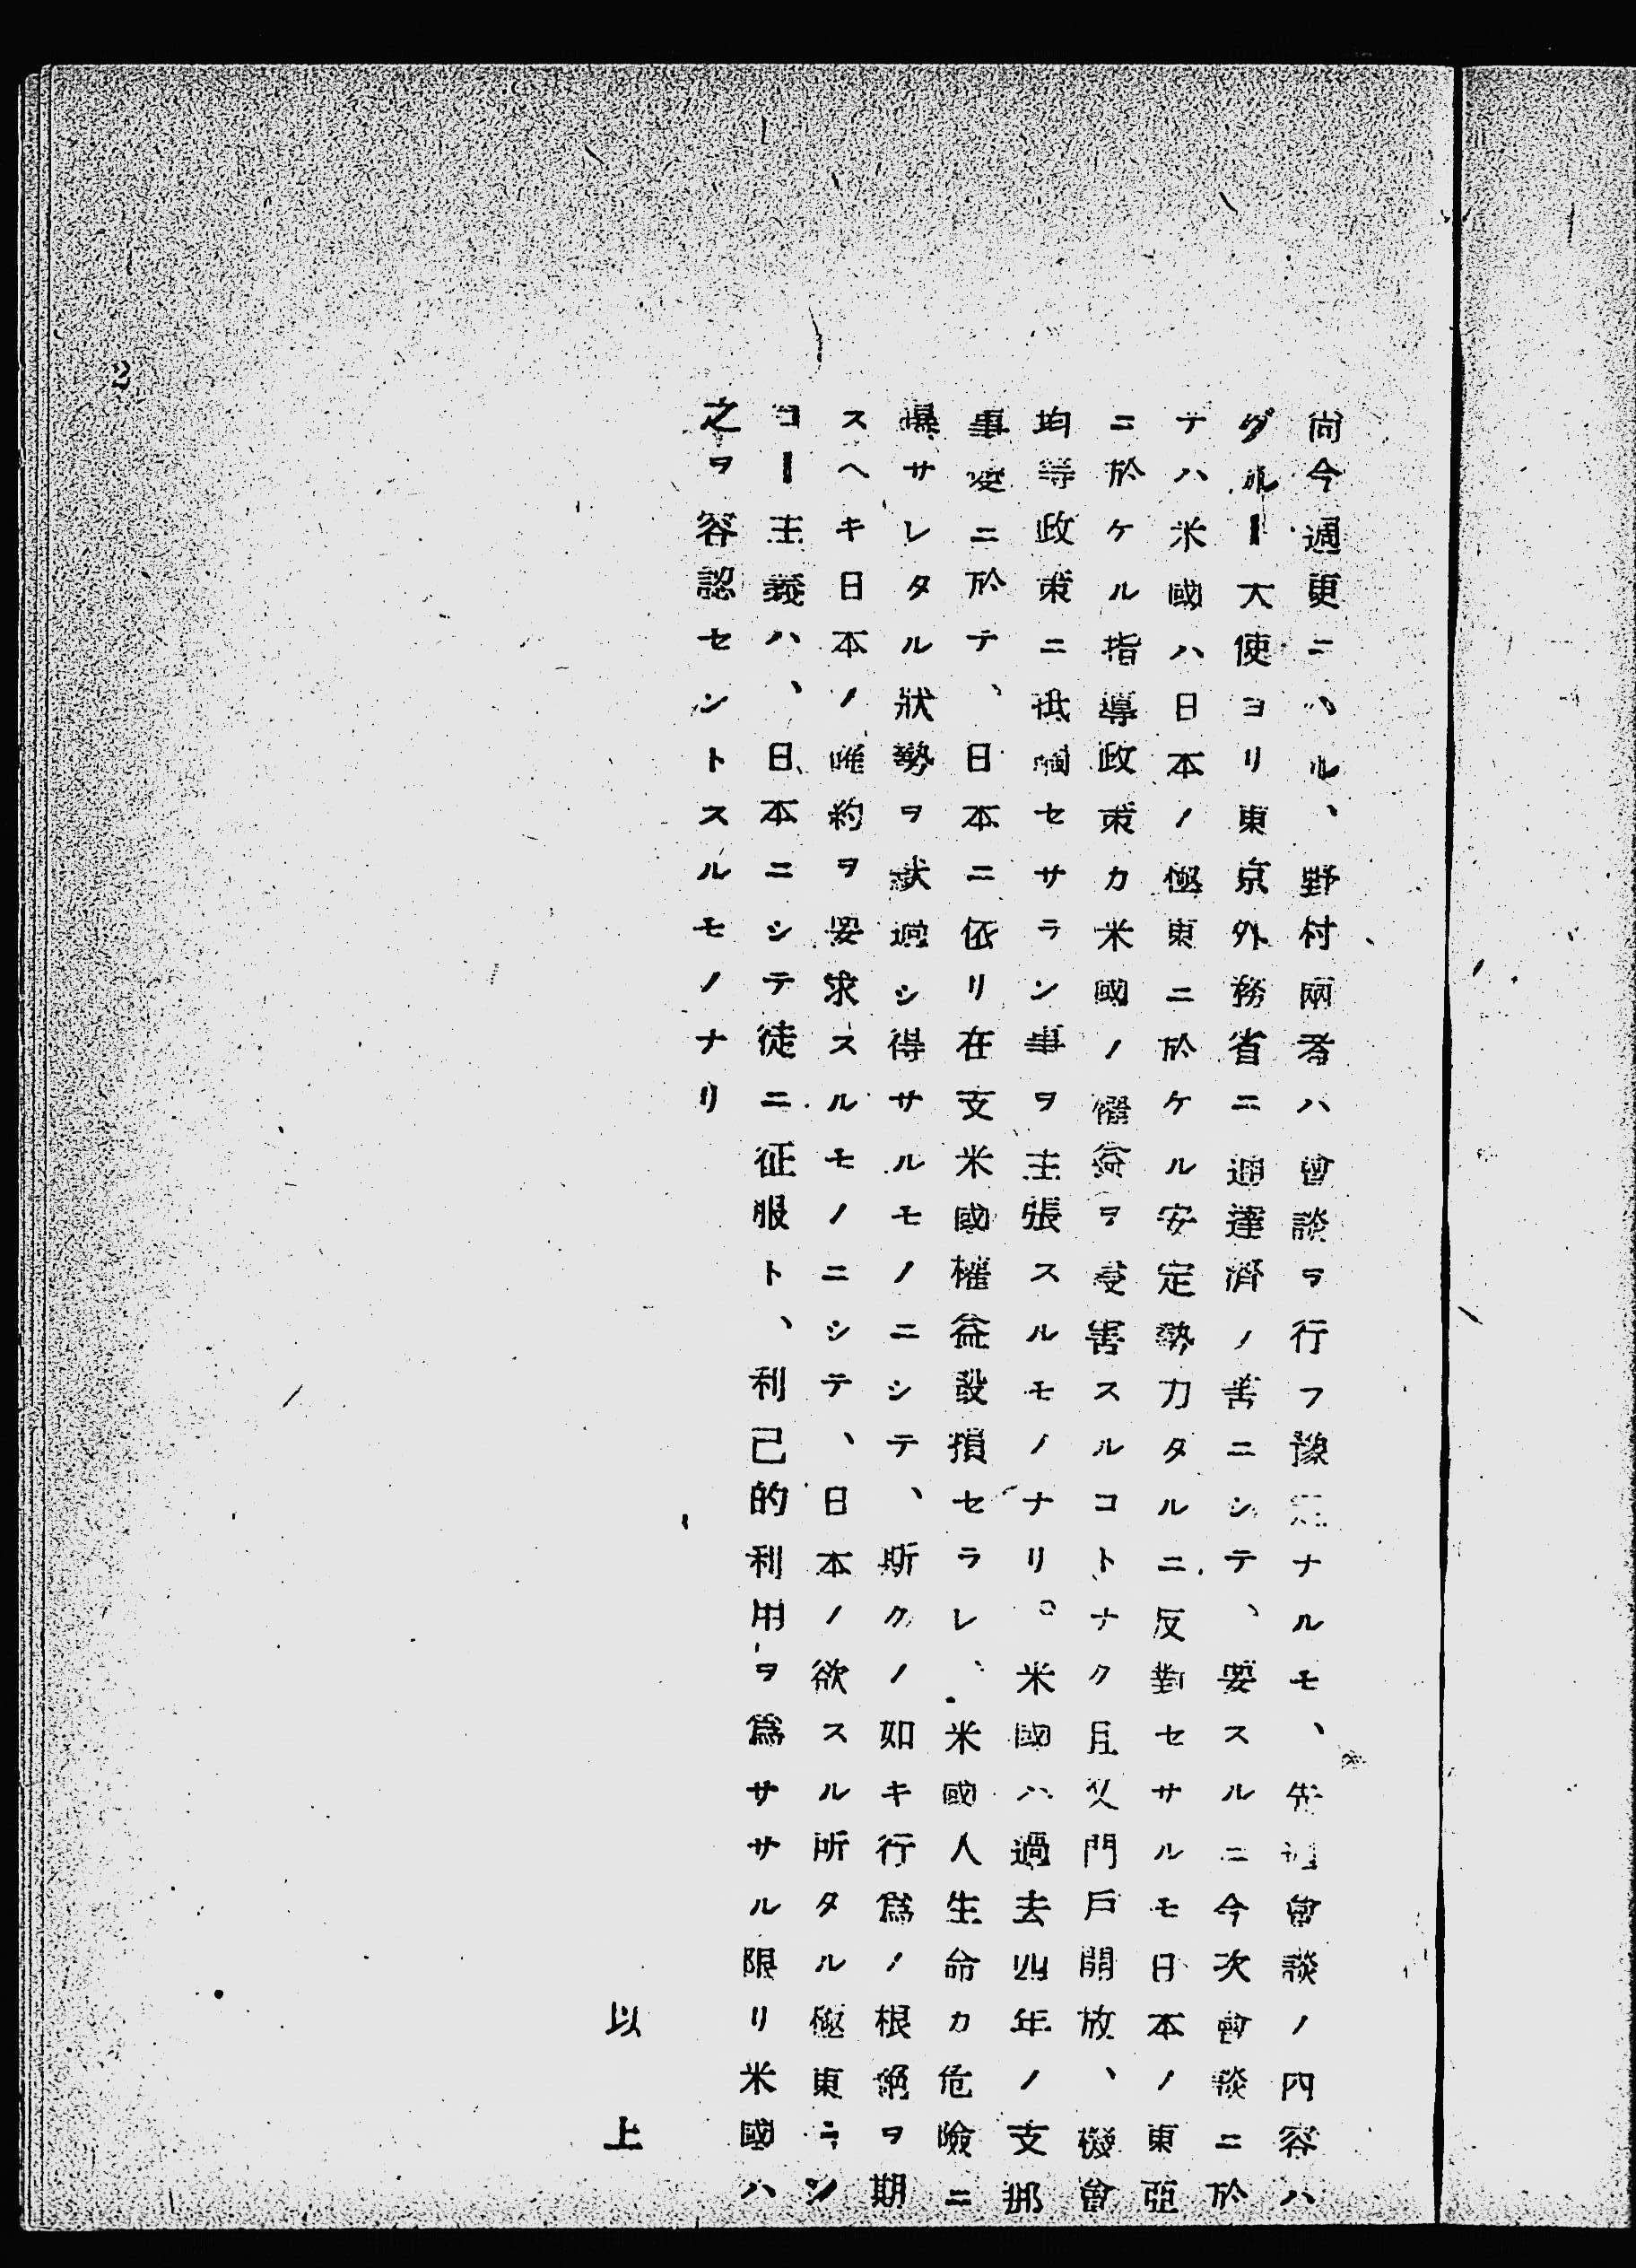 尙今週更ニハル、野村兩者ハ會談ヲ行フ豫定ナルモ、先週會談ノ內容ハ
グルー大使ヨリ東京外務省ニ通達濟ノ筈ニシテ、要スルニ今次會談ニ於
テハ米國ハ日本ノ極東ニ於ケル安定勢力タルニ反對セサルモ日本ノ東亞
ニ於ケル指導政策カ米國ノ權益ヲ侵害スルコトナク且又門戶開放、機會
均等政策ニ抵觸セサラン事ヲ主張スルモノナリ。米國ハ過去四年ノ支那
事變ニ於テ、日本ニ依リ在支米國權益毀損セラレ、米國人生命カ危險ニ
爆サレタル狀勢ヲ默過シ得サルモノニシテ、斯クノ如キ行爲ノ根絕ヲ期
スヘキ日本ノ唯約ヲ要求スルモノニシテ、日本ノ欲スル所タル極東ラン
ヨー主義ハ、日本ニシテ徒ニ征服ト、利己的利用ヲ爲ササル限リ米國ハ
之ヲ容認セントスルモノナリ
以上
2